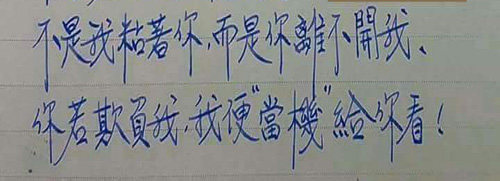 不是我粘著你,而是你離不開我、
你若欺負我,我便"當機"給你看!